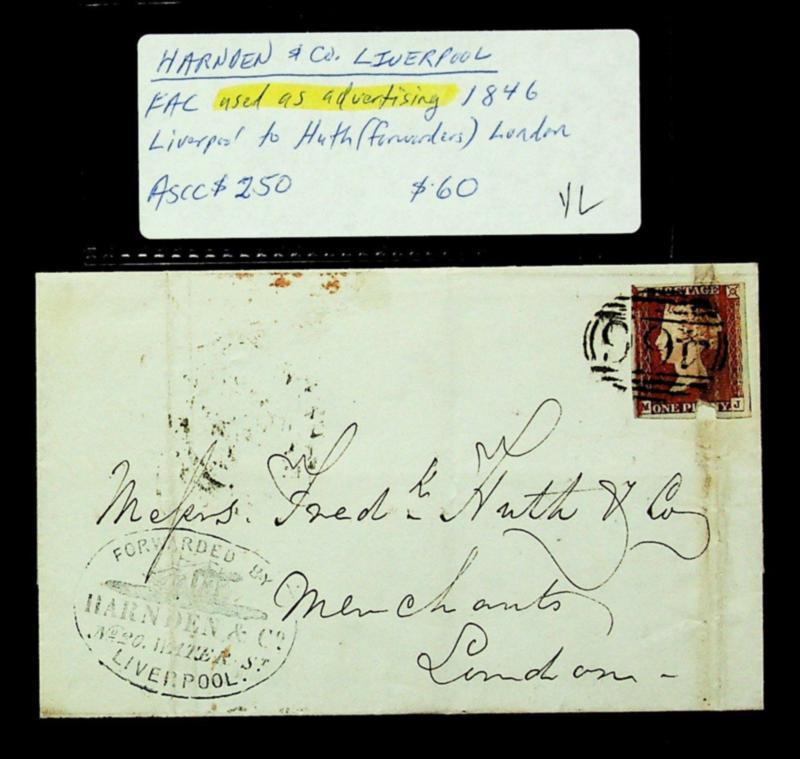 HARNDEN & Co. LIVERPOOL
FAC used as advertising 1846
Liverpool to Huth (forwarders) London
ASCC $ 250 $60
YL
POSTAGE
466
M ONE PENNY J
Messrs. Fredk Huth & Co
Merchants
London
FORWARDED BY
HARNDEN & Co.
No. 20. WATER. ST.
LIVERPOOL.